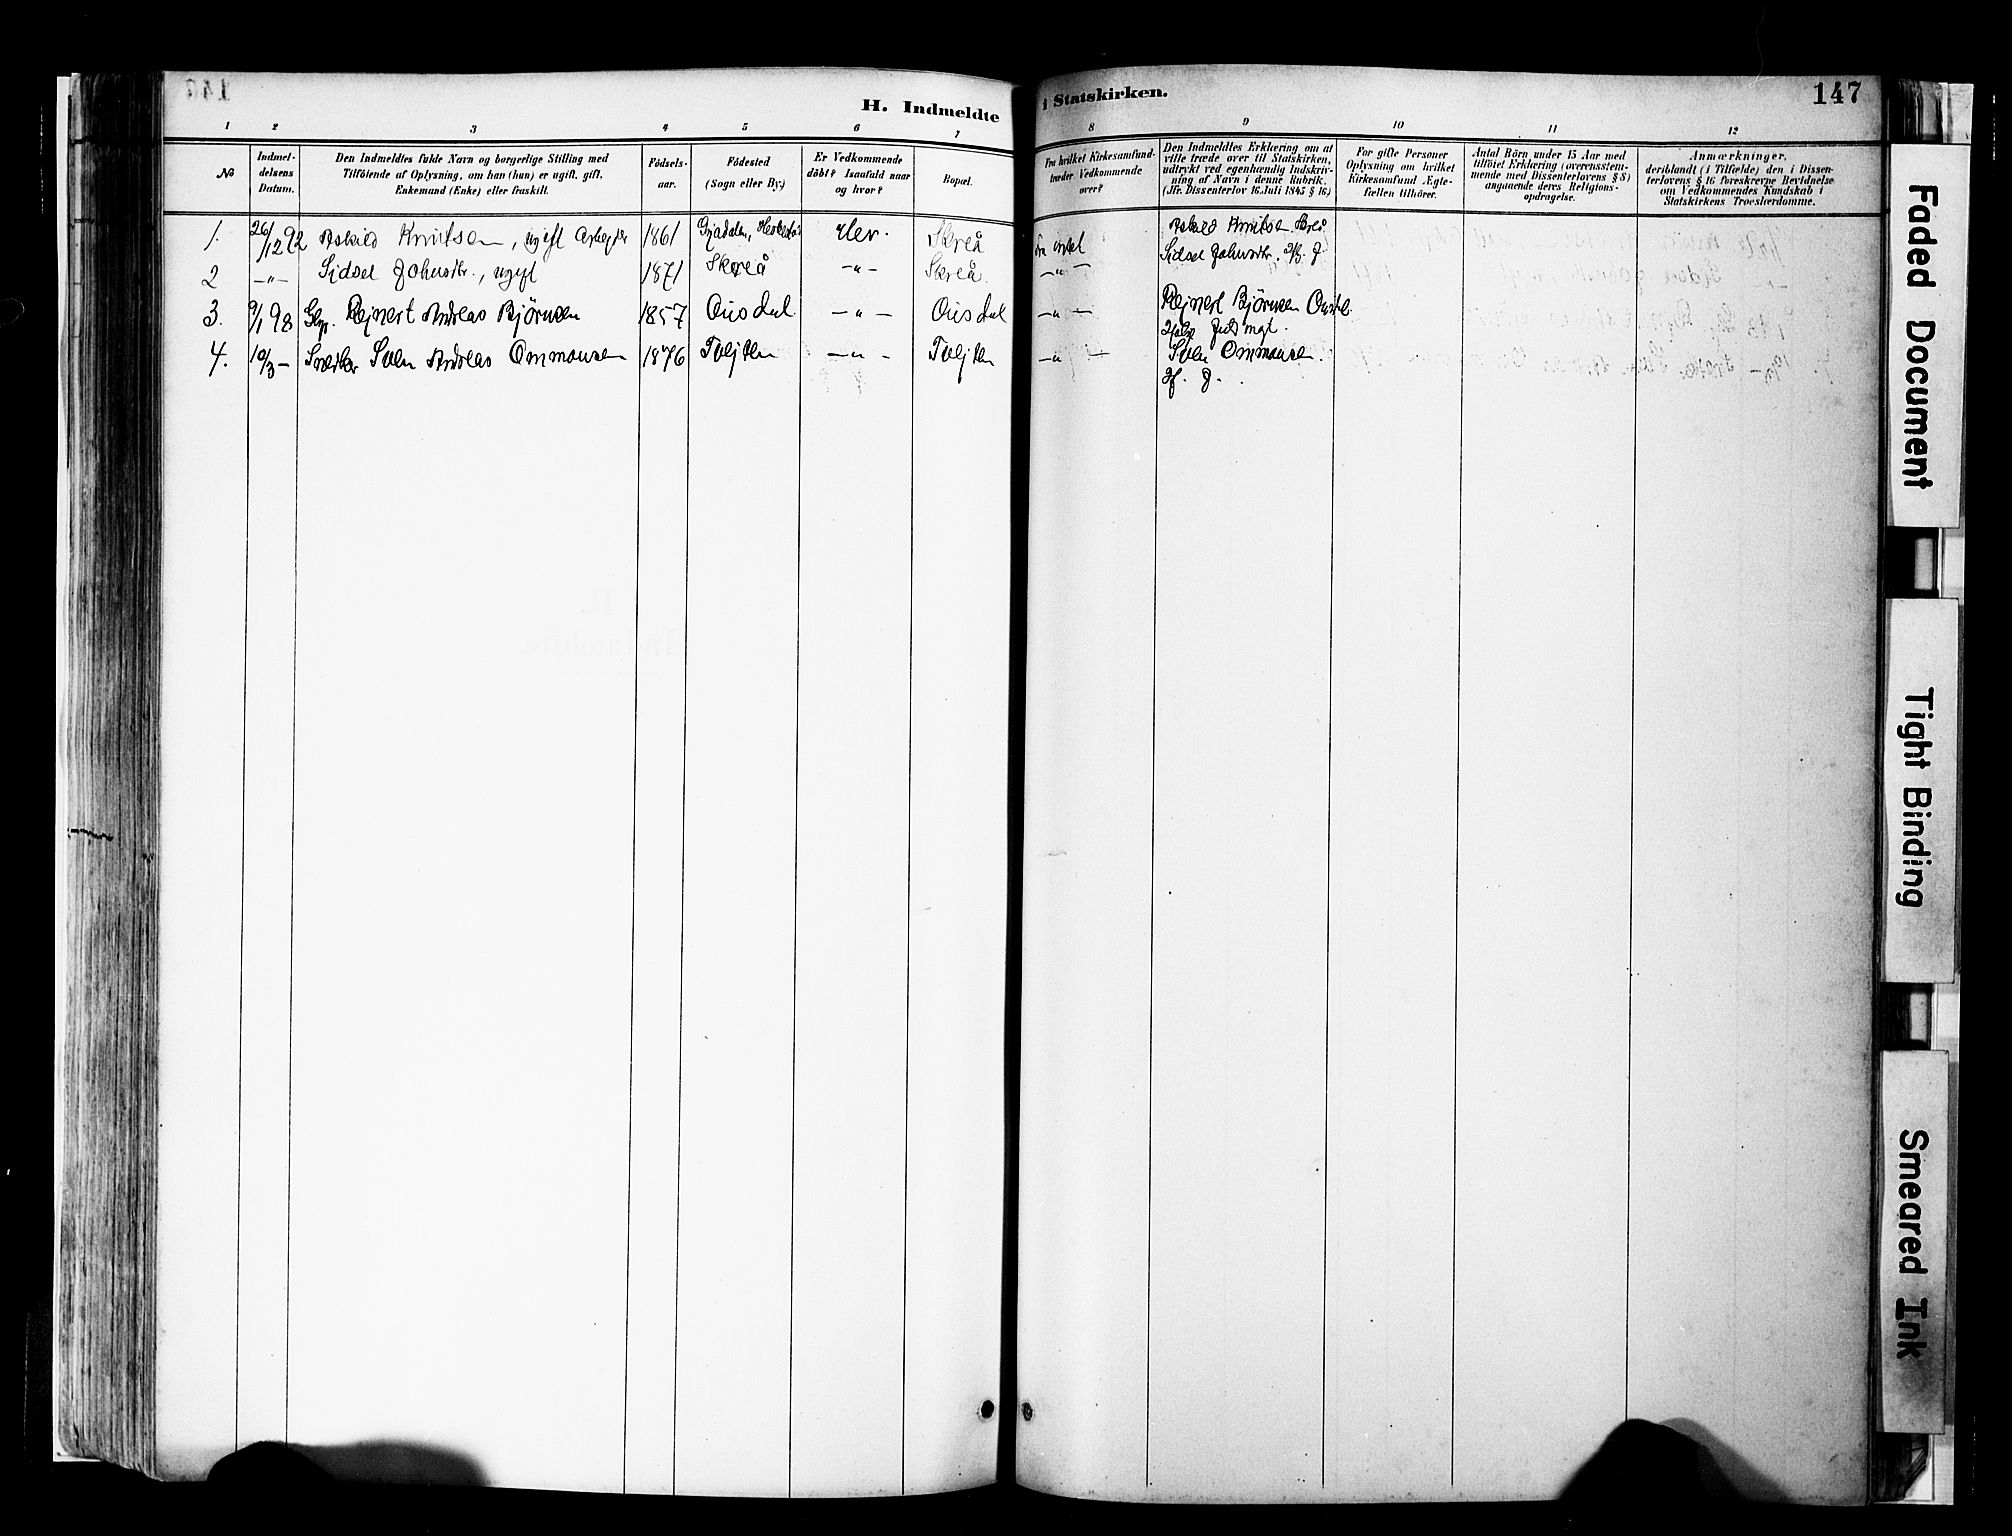 H. Indmeldte i Statskirken.
147
1 2 3 4 5 6 7 8 9 10 11 12
No
Indmel-
delsens
Datum.
Den Indmeldtes fulde Navn og borgerlige Stilling med
Tilföiende af Oplysning, om han (hun) er ugift, gift,
Enkemand (Enke) eller fraskilt.
Födsels-
aar.
Födested
(Sogn eller By.)
Er Vedkommende
döbt? Isaafald naar
og hvor?
Bopæl.
Fra hvilket Kirkesamfund
træder Vedkommende
over?
Den Indmeldtes Erklæring om at
ville træde over til Statskirken,
udtrykt ved egenhændig Indskriv-
ning af Navn i denne Rubrik.
(Jfr. Dissenterlov 16. Juli 1845 § 16.)
For gifte Personer
Oplysning om hvilket
Kirkesamfund Ægte-
fællen tilhörer.
Antal Börn under 15 Aar med
tilföiet Erklæring (overensstem-
mende med Dissenterlovens § 8)
angaaende deres Religions-
opdragelse.
Anmærkninger,
deriblandt (i Tilfælde) den i Dissen-
terlovens § 16 foreskrevne Bevidnelse
om Vedkommendes Kundskab i
Statskirkens Troeslærdomme.
1. 26/12 92 Askild Knutsen, ugift Arbejder 1861 Gjadalen, Skreå Fra intet Askild Knutsen Skreå
2 -"- Sidsel Johnsdtr., ugift 1871 Skreå -"- Skreå. -"- Sidsel Johnsdtr.
3. 9/1 98 Rejnert Andreas Björnsen 1857 Ousdal -"- Ousdal -"- Rejnert Björnsen
4. 10/3 - Sven Andreas Ommonsen 1876 Tvejten -"- Tvejten -"- Sven Ommonsen.
Faded Document
Tight Binding
Smeared Ink